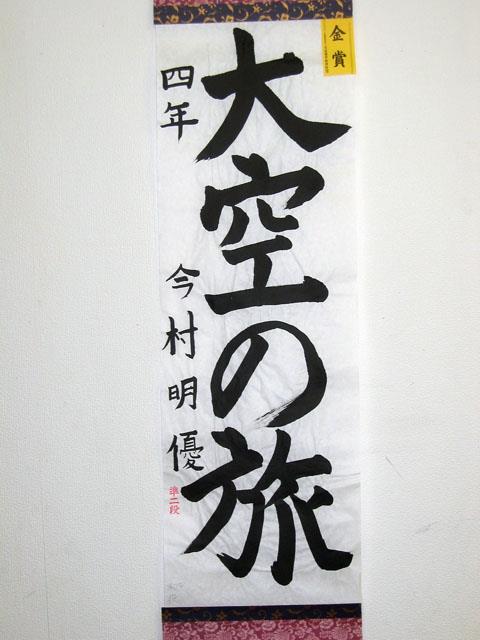 金賞
大空の旅
四年 今村明優
準二段